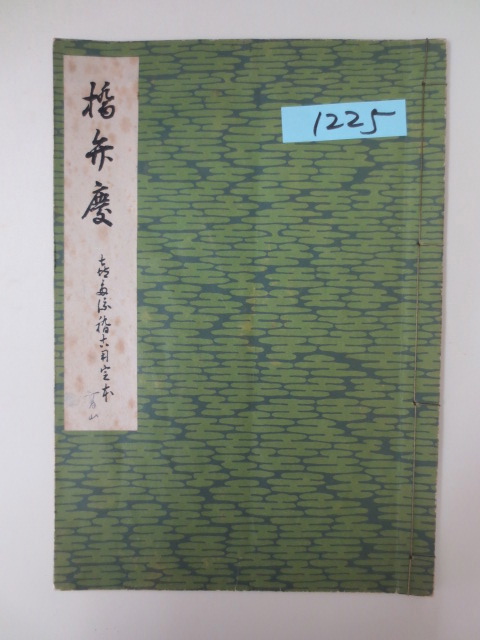 橋弁慶
喜多流稽古用定本
1225